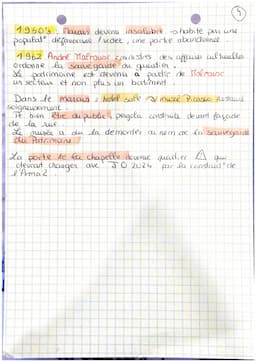 3
1950's Marais devenu insalubre → habité par une
populat° défavorisée / vidée, une partie abandonnée.
1962 André Malraux : ministre des affaires culturelles
ordonne la sauvegarde du quartier.
Le patrimoine est devenu à partir de Malraux
un secteur et non plus un batiment.
Dans le marais : hotel salé → musée Picasso restauré
soigneusement.
être du public, pergola construite devant façade
de la rue.
Le musée a du la démonter au nom de la sauvegarde
du Patrimoine.
La porte de la chapelle devenue quartier △ qui
devrait changer avec JO 2024 par la construct° de
l'Arena 2.